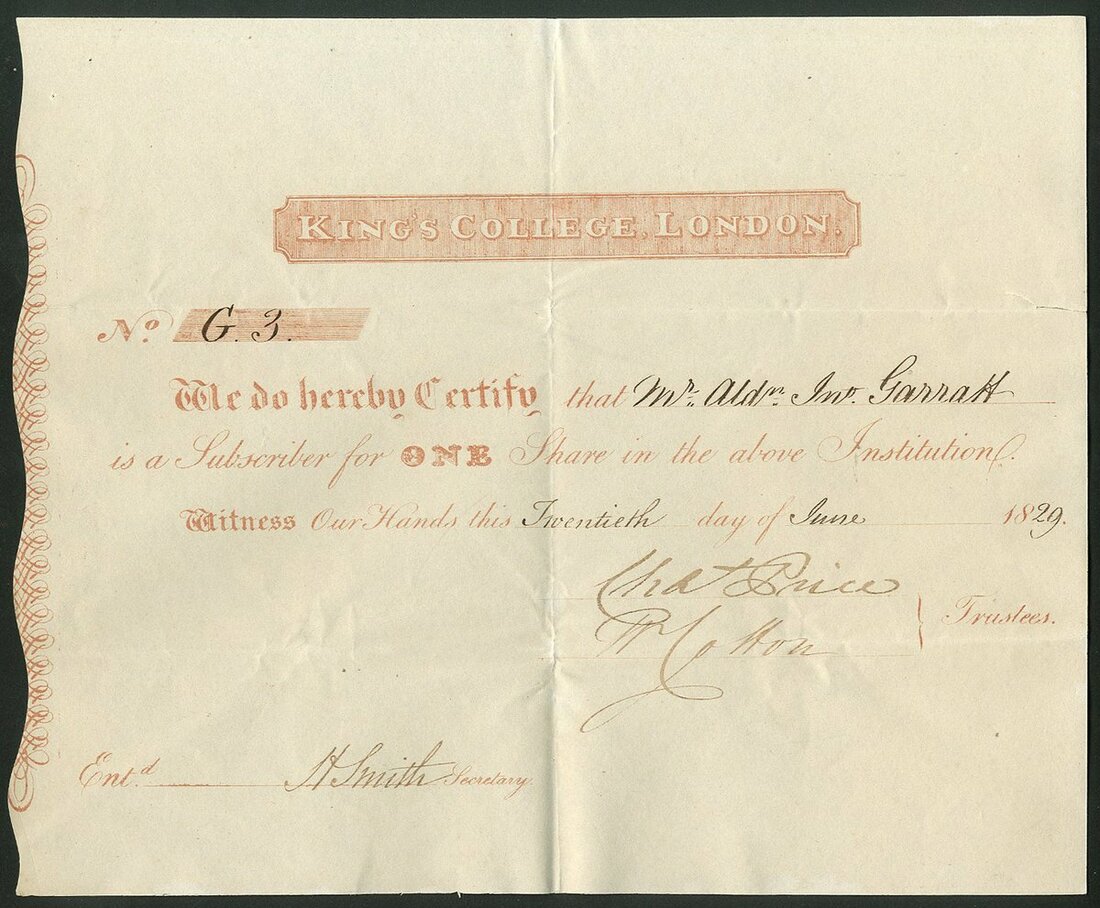 KING'S COLLEGE, LONDON.
No. G. 3.
We do hereby Certify that Mr. Aldn. Jno. Garratt
is a Subscriber for ONE Share in the above Institution.
Witness Our Hands this Twentieth day of June 1829.
Chas Price
W Cotton
Trustees.
Entd. H Smith Secretary